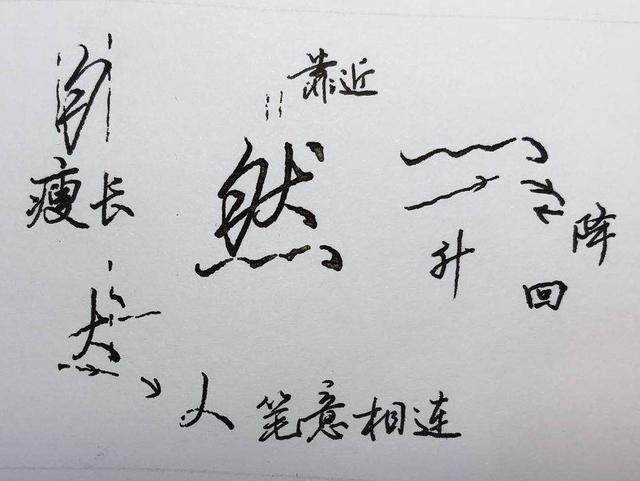 靠近
瘦长
然
升
降
回
犬
人 笔意相连